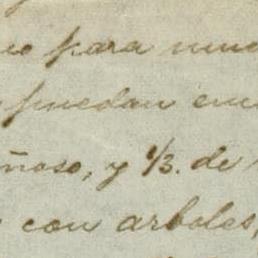 para
puedan
ñoso, y 1/3. de
con arboles,